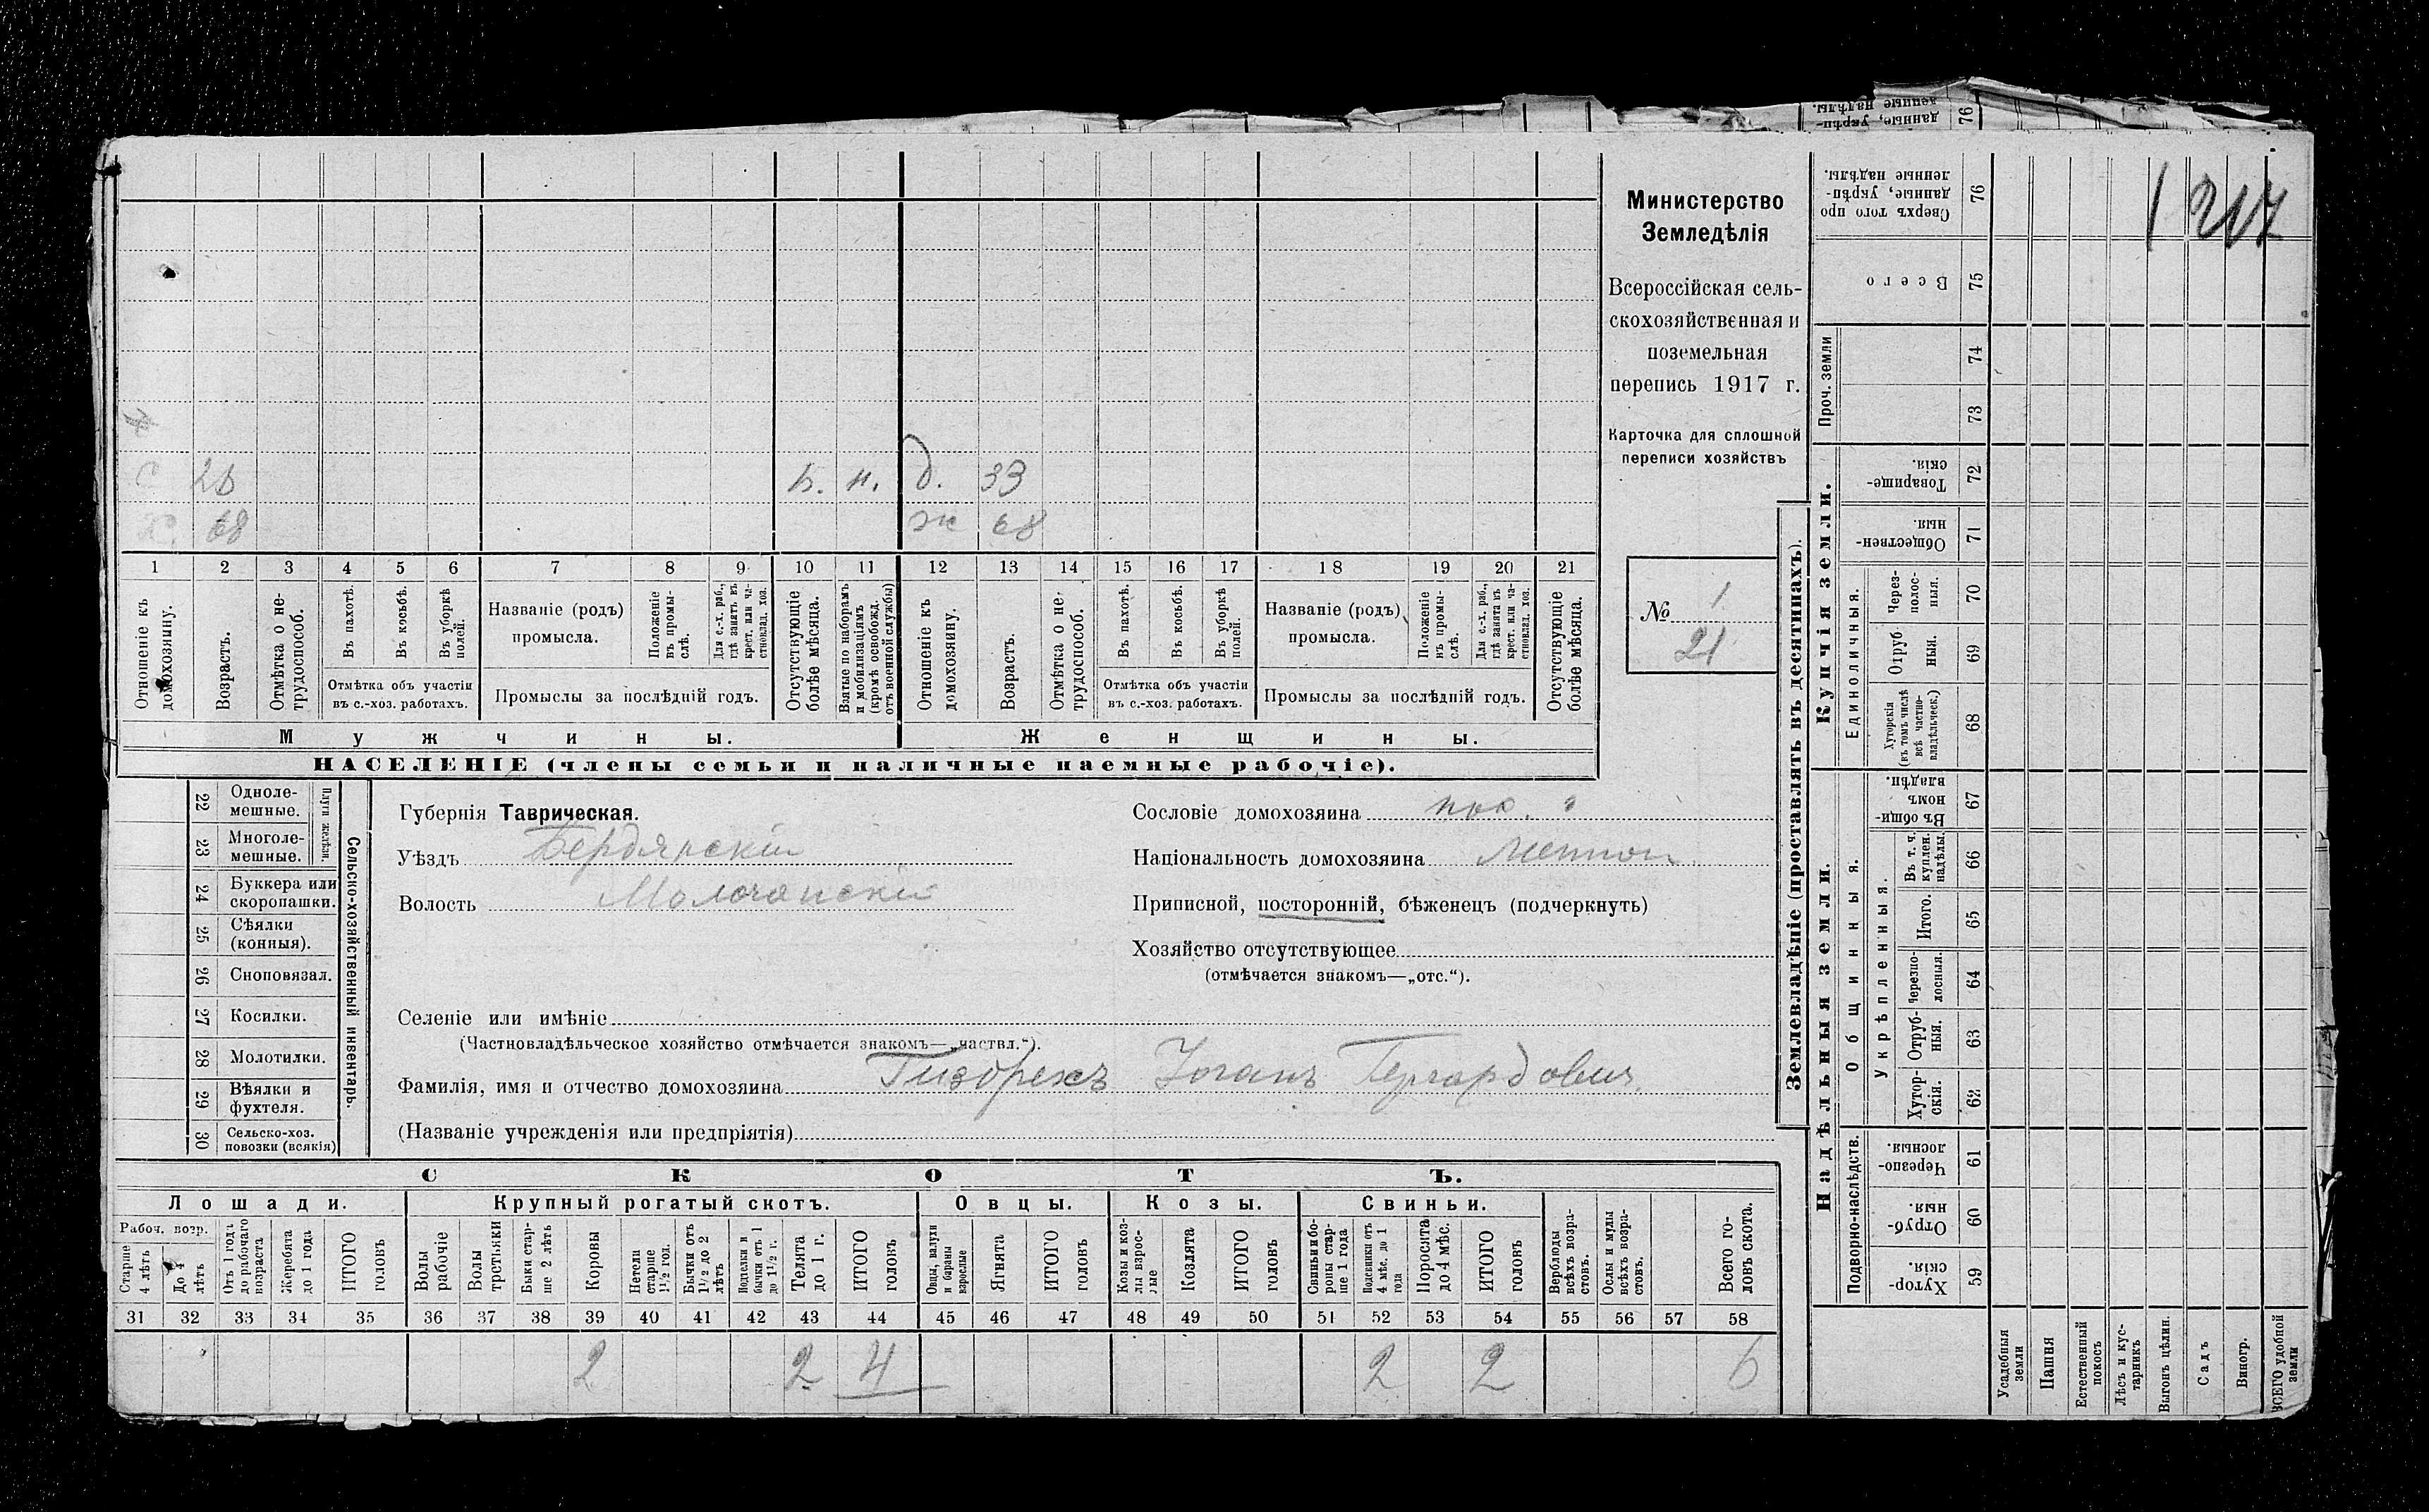 денные, укрѣп-
ленные надѣлы.
76
1 217
Министерство
Земледѣлія
Всероссійская сель-
скохозяйственная и
поземельная
перепись 1917 г.
Карточка для сплошной
переписи хозяйствъ
№ 1
21
б. н. д. 33
68 ж 68
1 2 3 4 5 6 7 8 9 10 11 12 13 14 15 16 17 18 19 20 21
Отношеніе къ домохозяину.
Возрастъ.
Отмѣтка о не-
трудоспособ.
Въ пахотѣ.
Въ косьбѣ.
Въ уборкѣ
полей.
Отмѣтка объ участіи
въ с.-хоз. работахъ.
Названіе (родъ)
промысла.
Положеніе
въ промы-
слѣ.
Для с.-х. раб.,
гдѣ занятъ въ
крест. или ча-
стновлад. хоз.
Промыслы за послѣдній годъ.
Отсутствующіе
болѣе мѣсяца.
Взятые по наборамъ
и мобилизаціямъ
(кромѣ освобожд.
отъ военной службы)
Отношеніе къ
домохозяину.
Возрастъ.
Отмѣтка о не-
трудоспособ.
Въ пахотѣ.
Въ косьбѣ.
Въ уборкѣ
полей.
Отмѣтка объ участіи
въ с.-хоз. работахъ.
Названіе (родъ)
промысла.
Положеніе
въ промы-
слѣ.
Для с.-х. раб.,
гдѣ занята въ
крест. или ча-
стновлад. хоз.
Промыслы за послѣдній годъ.
Отсутствующіе
болѣе мѣсяца.
Мужчины.
Женщины.
НАСЕЛЕНІЕ (члены семьи и наличные наемные рабочіе).
22 Однолe-
мешные.
23 Многоле-
мешные.
Плуги желѣзн.
24 Буккера или
скоропашки.
25 Сѣялки
(конныя).
26 Сноповязал.
27 Косилки.
28 Молотилки.
29 Вѣялки и
фухтеля.
30 Сельско-хоз.
повозки (всякія)
Сельско-хозяйственный инвентарь.
Губернія Таврическая.
Уѣздъ Бердянскій
Волость Молочанскій
Сословіе домохозяина пос.
Національность домохозяина Меннон
Приписной, посторонній, бѣженецъ (подчеркнуть)
Хозяйство отсутствующее
(отмѣчается знакомъ—„отс.“).
Селеніе или имѣніе
(Частновладѣльческое хозяйство отмѣчается знакомъ—„частвл.“).
Фамилія, имя и отчество домохозяина Гизбрехъ Іоганъ Гергардовичъ
(Названіе учрежденія или предпріятія)
СКОТЪ.
Лошади.
Крупный рогатый скотъ.
Овцы.
Козы.
Свиньи.
Рабоч. возр.
Старше
4 лѣтъ
До 4
лѣтъ
Отъ 1 года
до рабочаго
возраста
Жеребята
до 1 года
ИТОГО
головъ
Волы
рабочіе
Волы
третьяки
Быки стар-
ше 2 лѣтъ
Коровы
Нетели
старше
1½ год.
Бычки отъ
1½ до 2
лѣтъ
Подтелки и
бычки отъ 1
до 1½ г.
Телята
до 1 г.
ИТОГО
головъ
Овцы, валухи
и бараны
взрослые
Ягнята
ИТОГО
головъ
Козы и коз-
лы взрос-
лые
Козлята
ИТОГО
головъ
Свиньи и бо-
ровы стар-
ше 1 года
Подсвинки отъ
4 мѣс. до 1
года
Поросята
до 4 мѣс.
ИТОГО
головъ
Верблюды
всѣхъ возра-
стовъ.
Ослы и мулы
всѣхъ возра-
стовъ.
Всего го-
ловъ скота.
31 32 33 34 35 36 37 38 39 40 41 42 43 44 45 46 47 48 49 50 51 52 53 54 55 56 57 58
2 2 4 2 2 6
Землевладѣніе (проставлять въ десятинахъ).
Купчія земли.
Надѣльныя земли.
Сверхъ того про
данные, укрѣп-
ленные надѣлы. 76
Всего 75
Проч. земли
74
73
Товарище-
скія. 72
Обществен-
ныя. 71
Единоличныя.
Через-
полос-
ныя. 70
Отруб
ныя. 69
Хуторскія
(въ томъ числѣ
всѣ частно-
владѣльческ.) 68
Общинныя.
Въ общи-
номъ
владѣн. 67
Укрѣпленныя.
Въ т. ч.
куплен.
надѣлы. 66
Итого. 65
Черезпо-
лосныя. 64
Отруб-
ныя. 63
Хутор-
скія. 62
Подворно-наслѣдств.
Черезпо-
лосныя 61
Отруб-
ныя. 60
Хутор-
скія. 59
Усадебныя
земли
Пашня
Естественный
покосъ
Лѣсъ и кус-
тарникъ
Выгонъ цѣлин.
Садъ
Виногр.
ВСЕГО удобной
земли